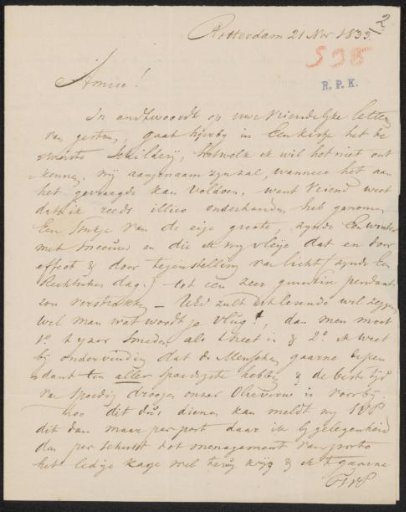 2
Rotterdam 21 Nov 1833
538
R. P. K.
Amice!
In andtwoordt op uwe vriendelijke letteren
van gisteren, gaat hijrbij in Een kistje het be
Schilderij, hetwelk ik wil het niet ont
kennen, mij aangenaam zijn zal, wanneer het aan
het gevraagde kan voldoen, want vriend weet
dat ik reeds illico onderhanden heb genomen
Een van de eige groote, zijnde Een winter
met sneeuw en die ik mij vleije dat en door
effect & door tegenstelling van licht (zijnde Een
dag) tot een zeer pendant
zou verstrekken — UEd zult zeggen
wel man wat wordt je vlug, dan men moet
1º 't ijzer smeden als 't heet is & 2º ik weet
bij ondervinding dat de Menschen gaarne
dank ten aller spoedigste hebben & de beste tijd
van spoedig droogen onzer is voorbij.
dit dus dienen kan meldt mij
dit dan maar per post daar ik bij gelegenheid
dan per schuit tot menagement van porto
het ledige kasje wel terug krijg & ik 't gaarne